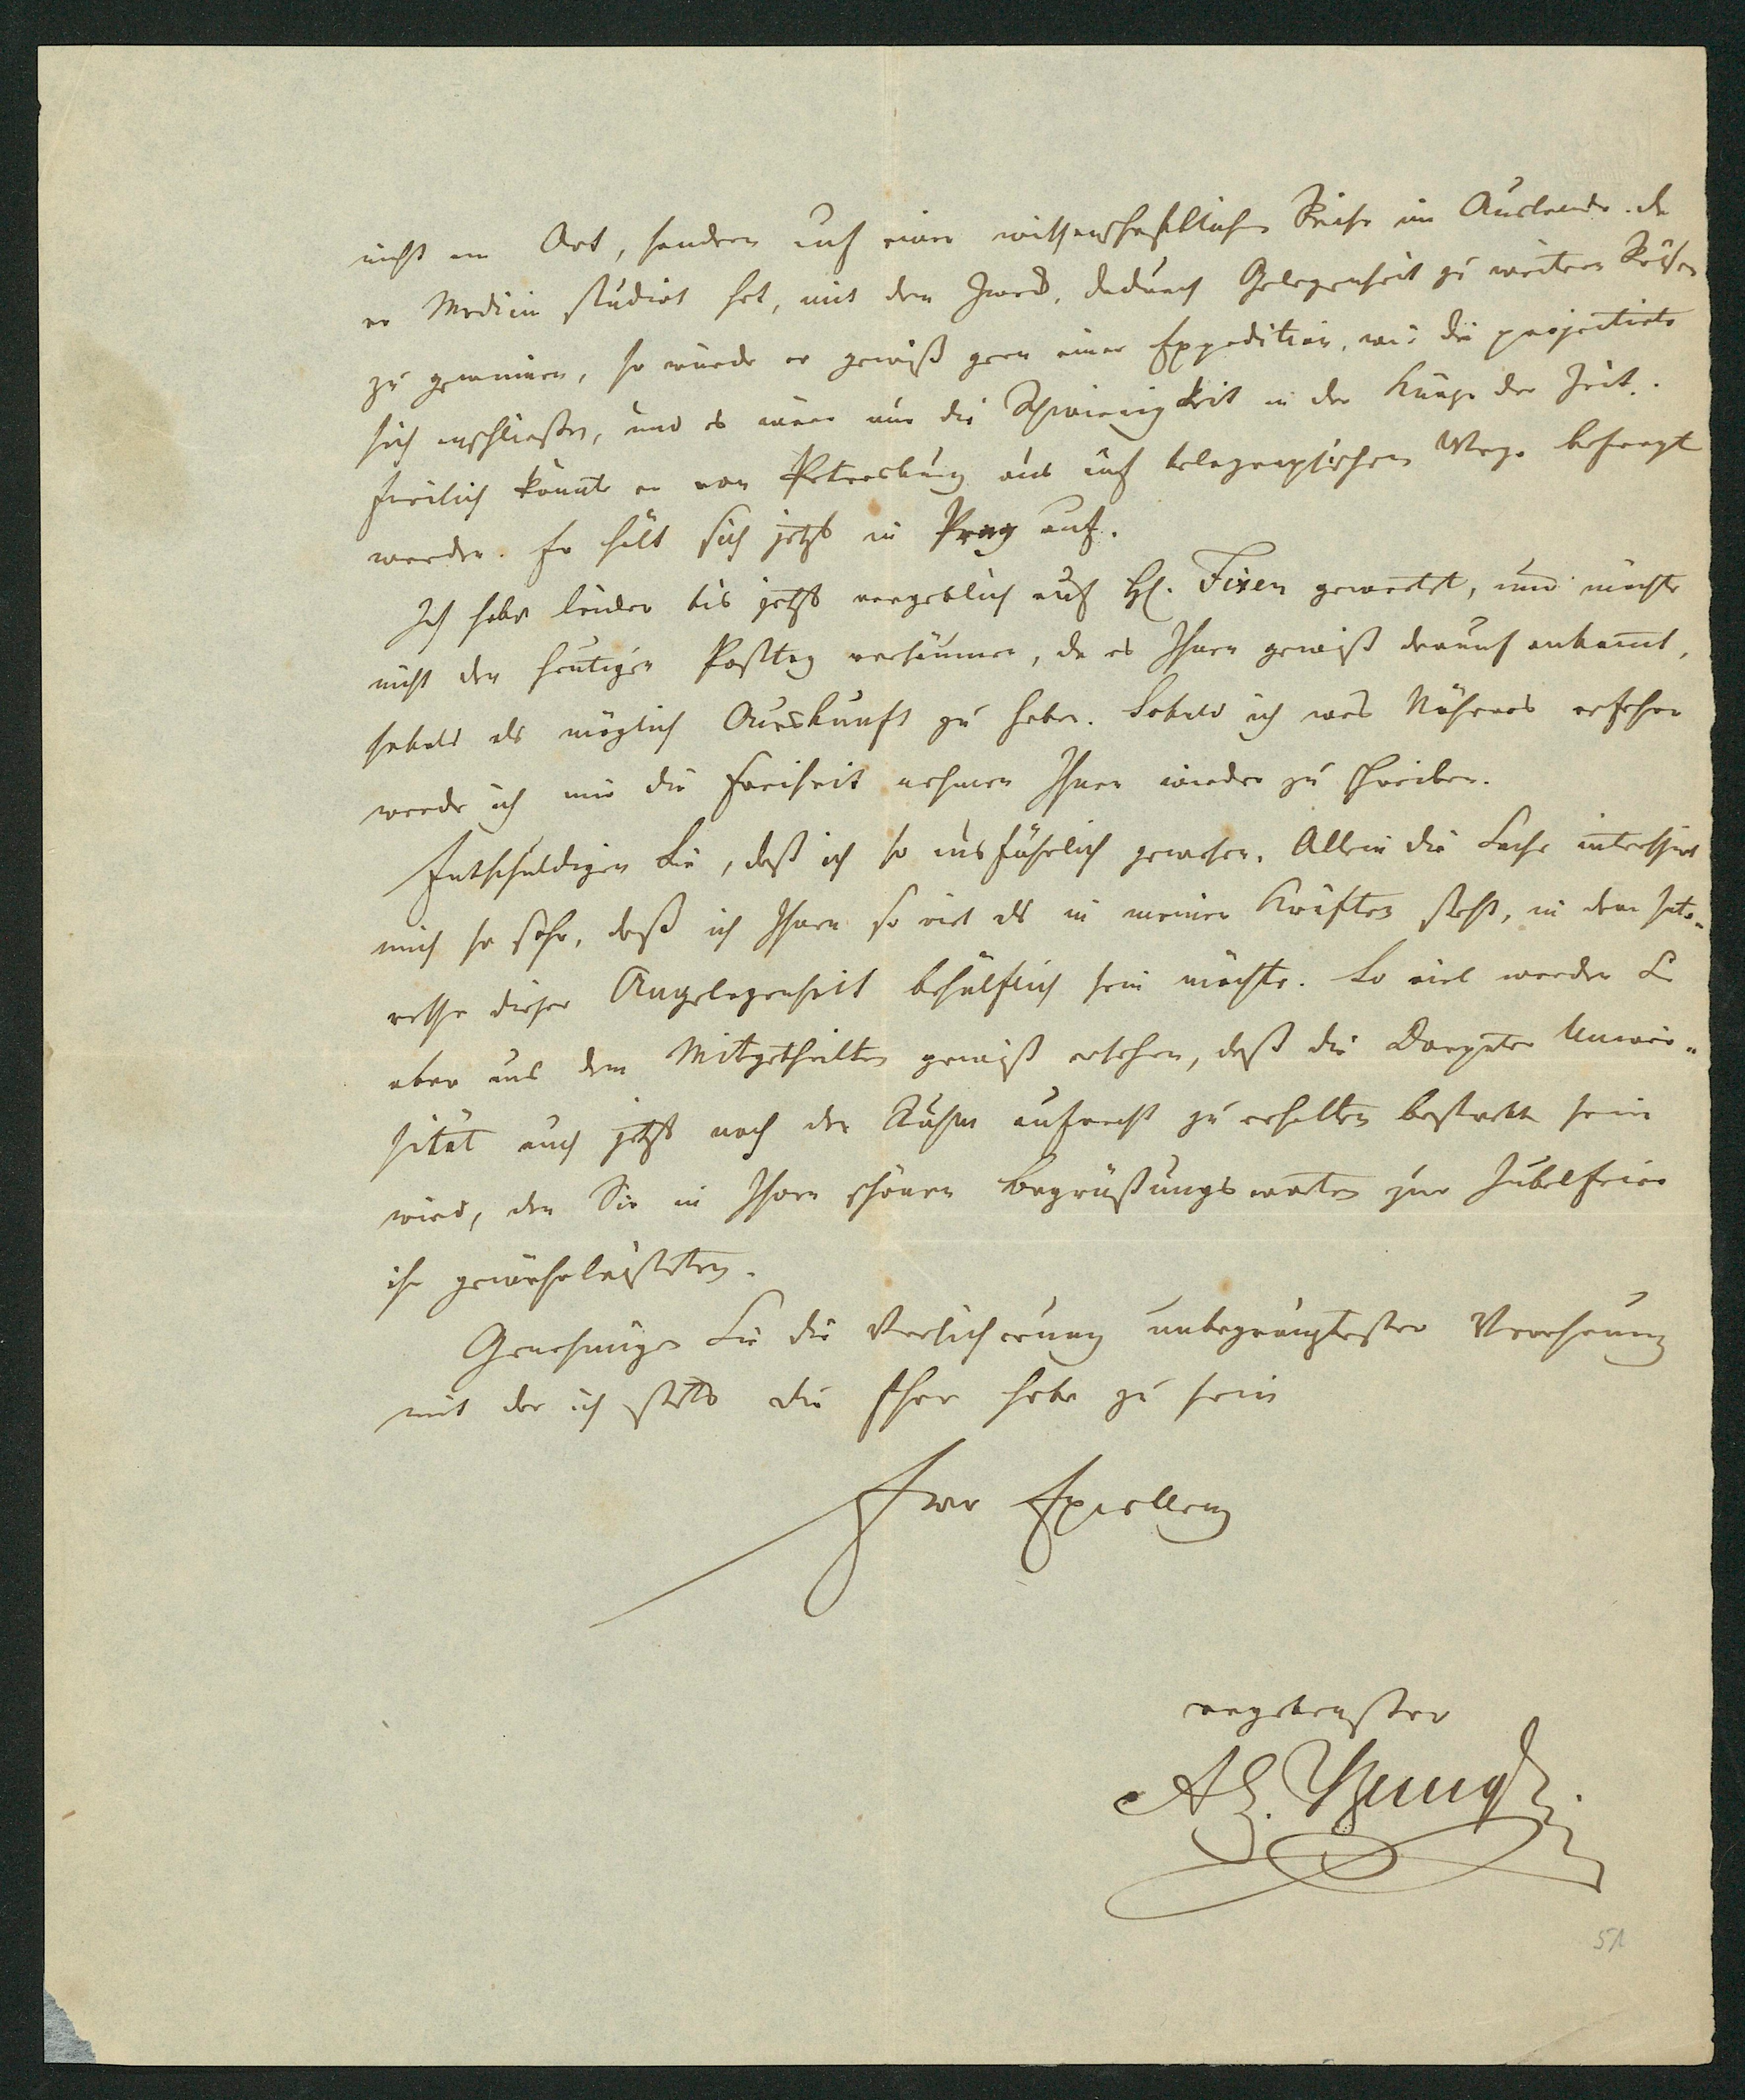 nicht am Ort, sondern auf einer wissenschaftlichen Reise im Auslande. da
er Medicin studirt hat, mit dem Zweck, dadurch Gelegenheit zu weiteren Reisen
zu gewinnen, so würde er gewiß gern einer Expedition, wie die projectirte
sich anschließen, und es wäre nur die Schwierigkeit in der Kürze der Zeit.
Freilich könnte er von Petersburg aus auf telegraphischem Wege befragt
werden. Er hält sich jetzt in Prag auf.
Ich habe leider bis jetzt vergeblich auf H. gewartet, und möchte
nicht den heutigen Posttag versäumen, da es Ihnen gewiß darauf ankomt,
sobald als möglich Auskunft zu haben. Sobald ich was Näheres erfahre
werde ich mir die Freiheit nehmen Ihnen wieder zu schreiben.
Entschuldigen Sie, daß ich so ausführlich gewesen. Allein die Sache interessirt
mich so sehr, daß ich Ihnen so viel als in meinen Kräften steht, in dem Inte-
resse dieser Angelegenheit behülflich sein möchte. So viel werden Sie
aber aus dem Mitgetheilten gewiß ersehen, daß die Dorpater Univer-
sität auch jetzt noch den Ruhm aufrecht zu erhalten bestrebt sein
wird, den Sie in Ihren schönen Begrüßungsworten zur Jubelfeier
ihr gewährleisteten.
Genehmigen Sie die Versicherung unbegränztester Verehrung
mit der ich stets die Ehre habe zu sein
Ewr Excellenz
ergebenster
Al. Bunge.
51